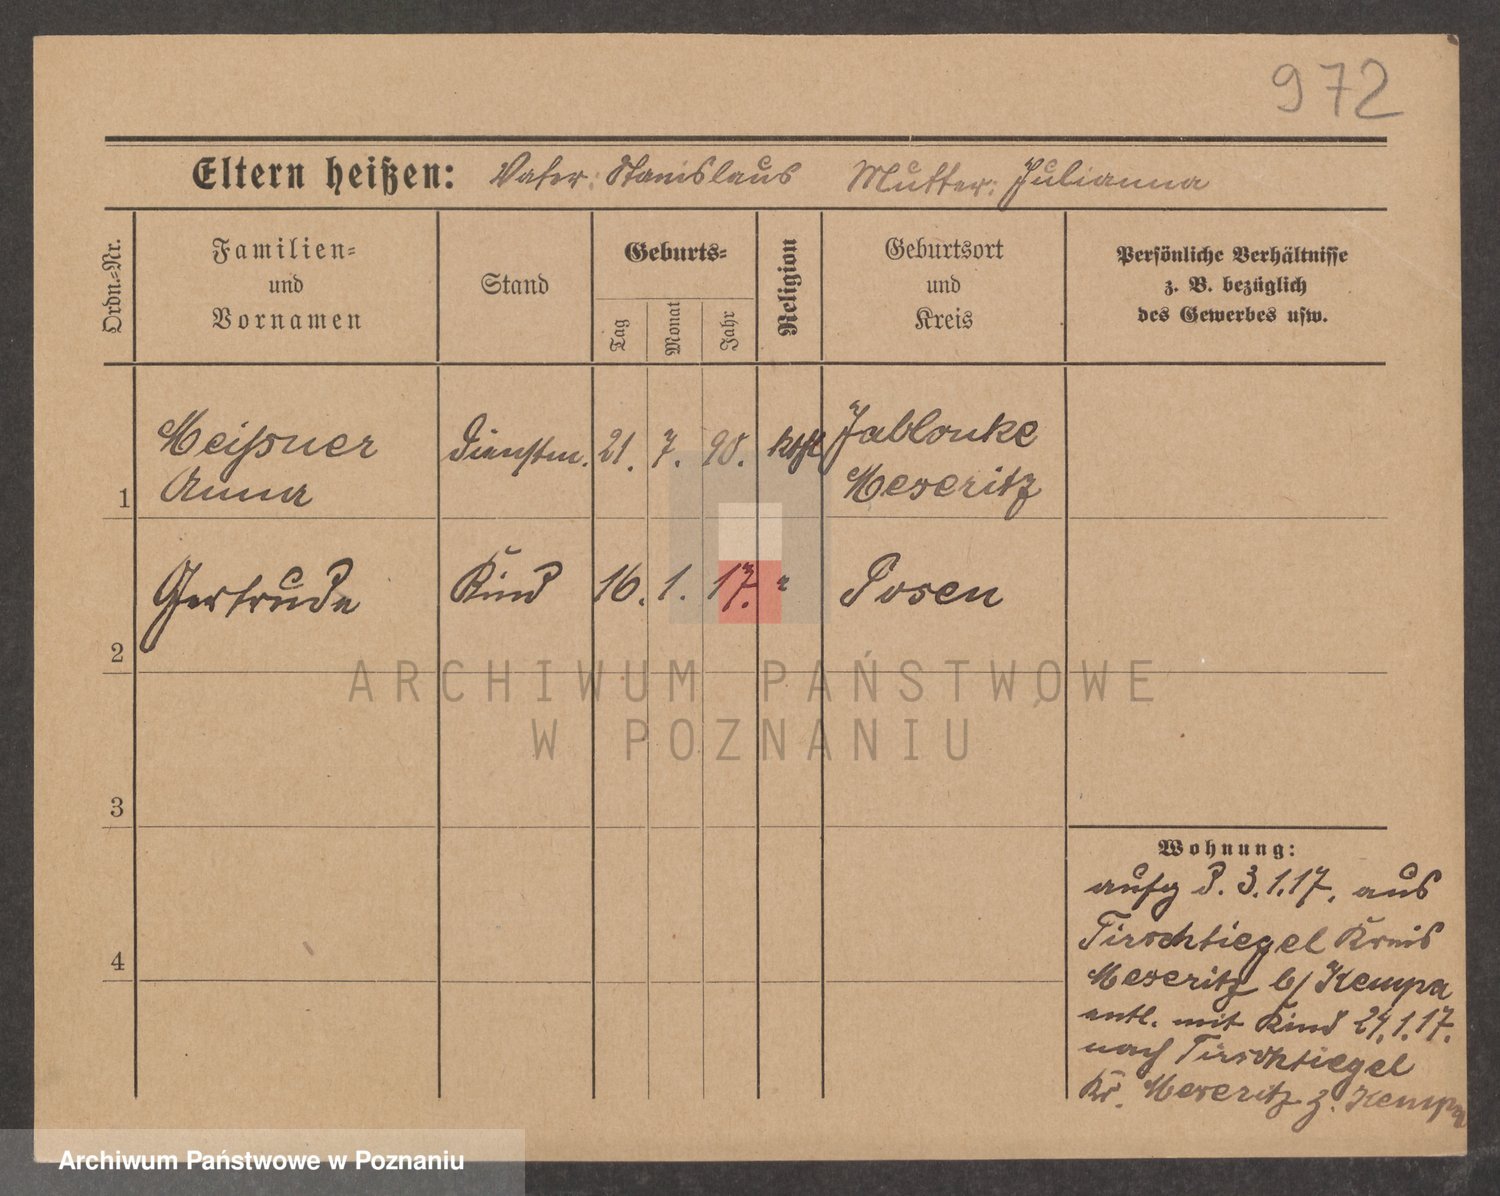 972
Eltern heißen: Vater: Stanislaus Mutter: Julianna
Ordn.-Nr.
Familien-
und
Vornamen
Stand
Geburts-
Tag
Monat
Jahr
Religion
Geburtsort
und
Kreis
Persönliche Verhältnisse
z. B. bezüglich
des Gewerbes usw.
1
Meißner
Anna
Dienstm.
21. 7. 90.
kath
Jablonke
Meseritz
2
Gertrude
Kind
16. 1. 17. "
Posen
3
4
Wohnung:
aufg d. 3.1.17. aus
Tirschtiegel Kreis
Meseritz b/ Kempa
entl. mit Kind 24.1.17.
nach Tirschtiegel
Kr. Meseritz z. Kempa
ARCHIWUM PAŃSTWOWE
W POZNANIU
Archiwum Państwowe w Poznaniu